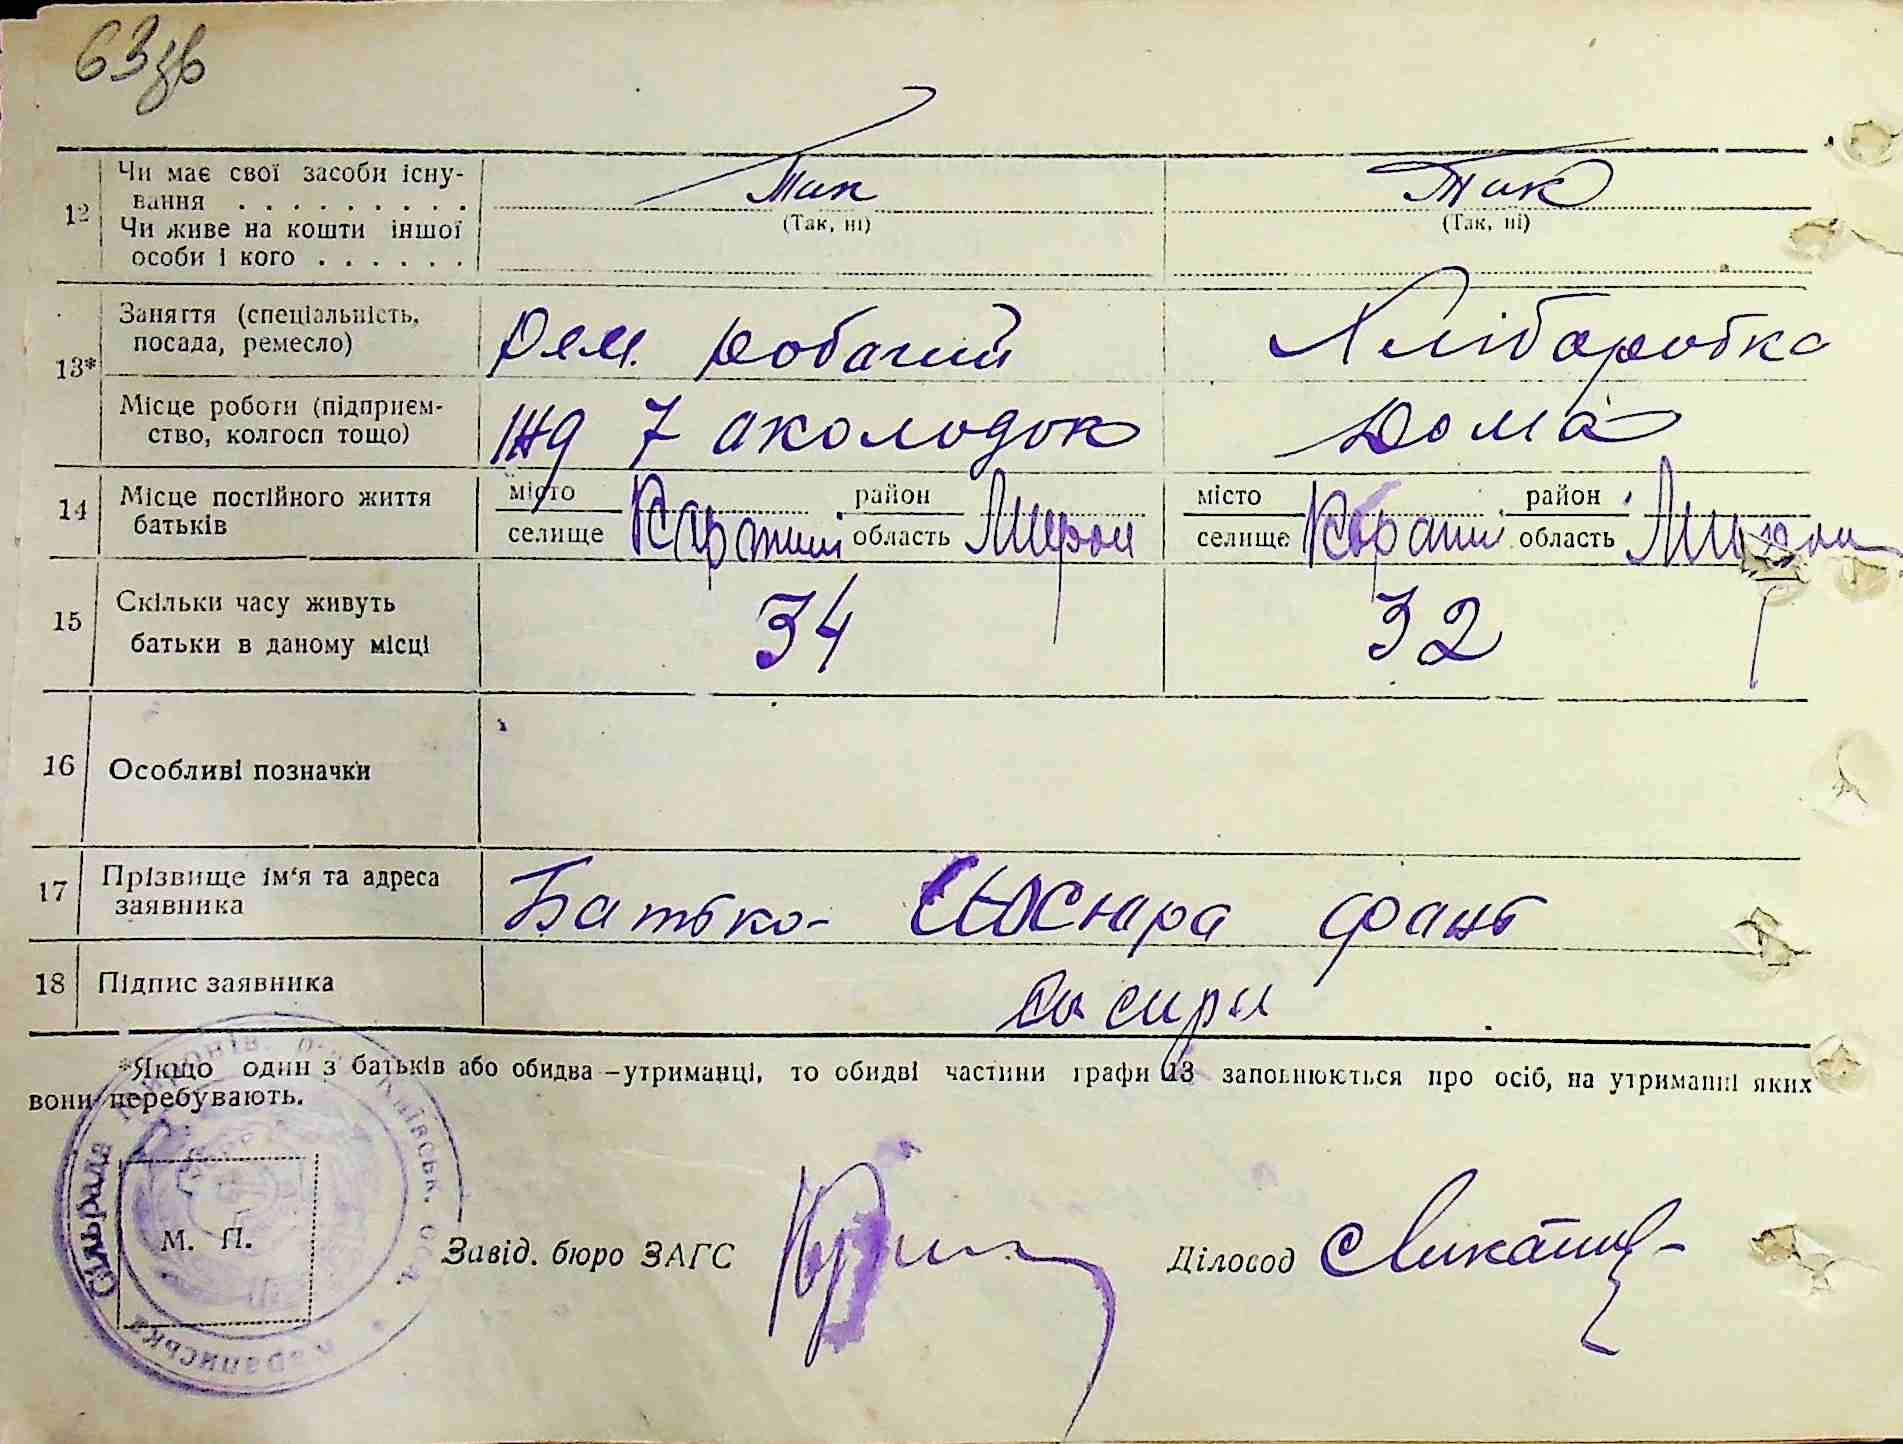 63зв
12 Чи має свої засоби існу- Так Так
вання . . . . . . . . . (Так, ні) (Так, ні)
Чи живе на кошти іншої
особи і кого . . . . . .
13* Заняття (спеціальність, Рем. робачий Хліборобка
посада, ремесло)
Місце роботи (підприєм- Жд 7 аколодок Дома
ство, колгосп тощо)
14 Місце постійного життя місто район місто район
батьків селище область Мирон селище область
15 Скільки часу живуть 34 32
батьки в даному місці
16 Особливі позначки
17 Прізвище ім'я та адреса Батько-
заявника
18 Підпис заявника
*Якщо один з батьків або обидва —утриманці, то обидві частини графи 13 заповнюються про осіб, на утриманні яких
вони перебувають.
Сільрада
Караписька
М. П.
Завід. бюро ЗАГС Діловод